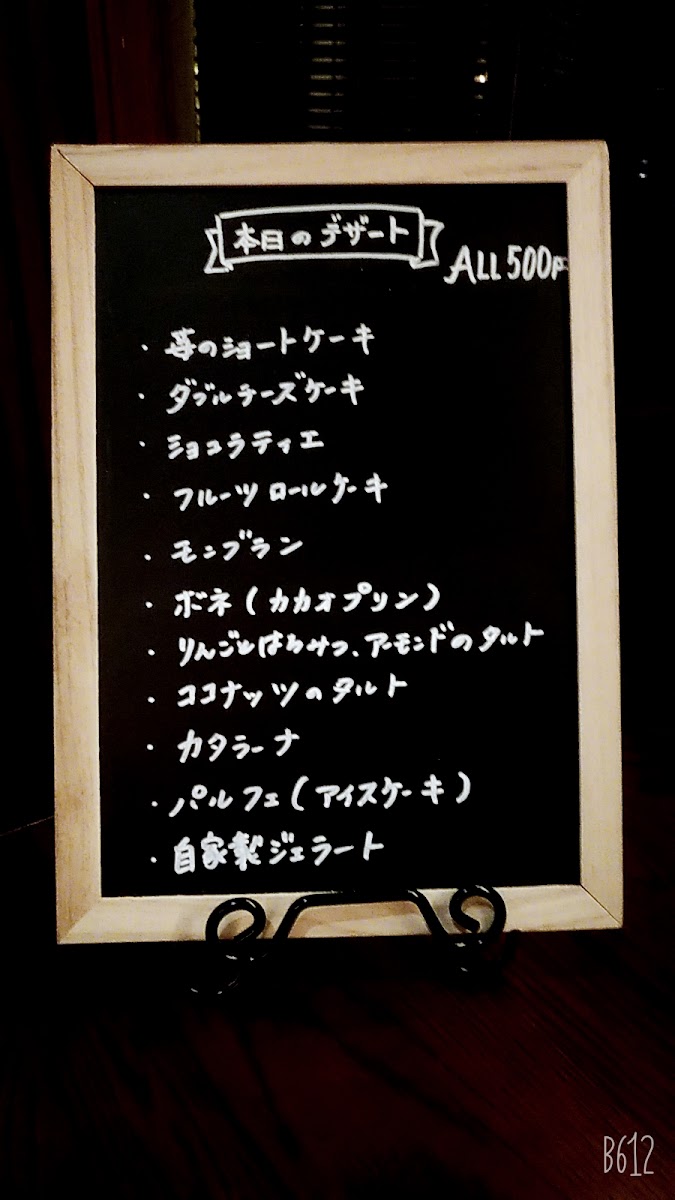 本日のデザート
ALL 500円
・苺のショートケーキ
・ダブルチーズケーキ
・ショコラティエ
・フルーツロールケーキ
・モンブラン
・ボネ(カカオプリン)
・りんごとはちみつ、アーモンドのタルト
・ココナッツのタルト
・カタラーナ
・パルフェ(アイスケーキ)
・自家製ジェラート
B612